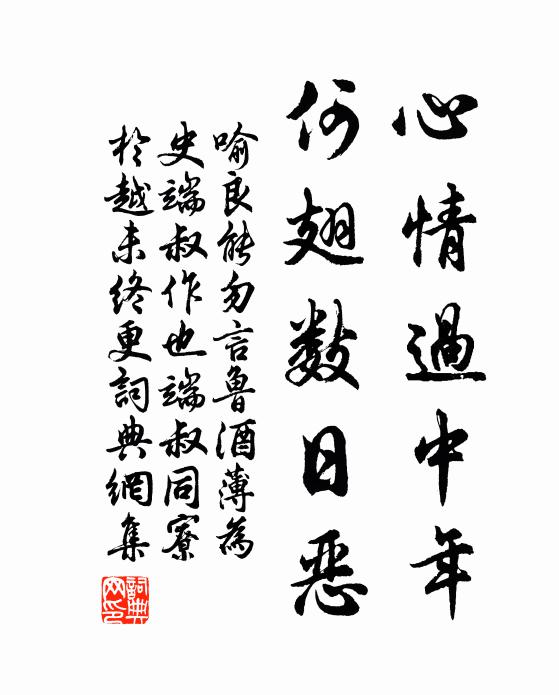 心情過中年
何翅數日惡
喻良能勿言魯酒薄為
史端叔作也端叔同寮
於越未終更詞典網集
詞典網印